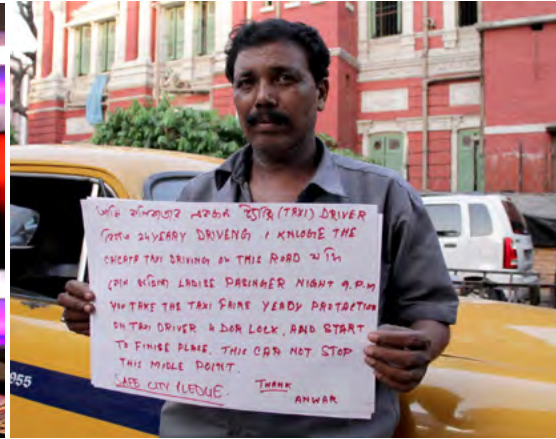 আমি কলিকাতার একজন ট্যাক্সি (TAXI) DRIVER
বিগত 24 YEARY DRIVENG I KNLOGE THE
CALCATA TAXI DRIVING ON THIS ROAD যদি
কোন মহিলা LADISE PASINGER NIGHT 9.P.M
YOU TAKE THE TAXI FAIRE YEADY PROTACTION
ON TAXI DRIVER 4 DOR LOCK, AND START
TO FINISE PLACE. THIS CAR NOT STOP
THIS MIDLE POINT.
SAFE CITY PLEDGE. THANK
ANWAR
955